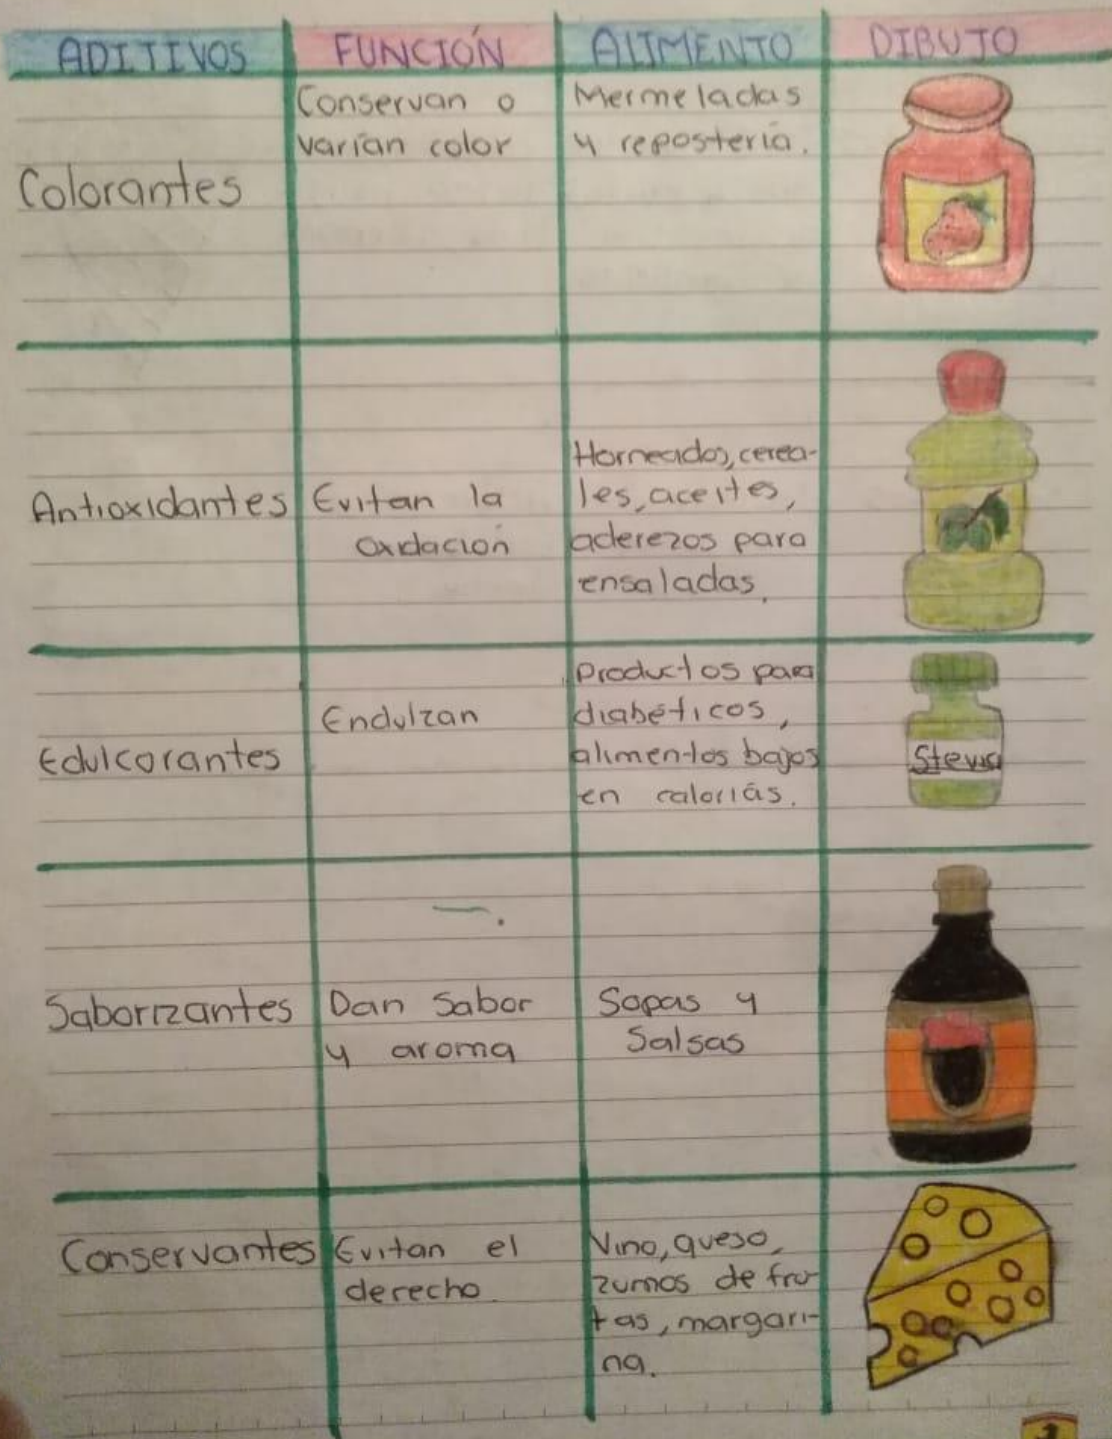 ADITIVOS FUNCIÓN ALIMENTO DIBUJO
Colorantes
Conservan o
varían color
Mermeladas
y repostería.
Antioxidantes
Evitan la
oxidación
Horneados, cerea-
les, aceites,
aderezos para
ensaladas.
Edulcorantes
Endulzan
Productos para
diabéticos,
alimentos bajos
en caloriás.
Stevia
Saborizantes
Dan Sabor
y aroma
Sopas y
Salsas
Conservantes
Evitan el
derecho.
Vino, queso,
zumos de fru-
tas, margari-
na.